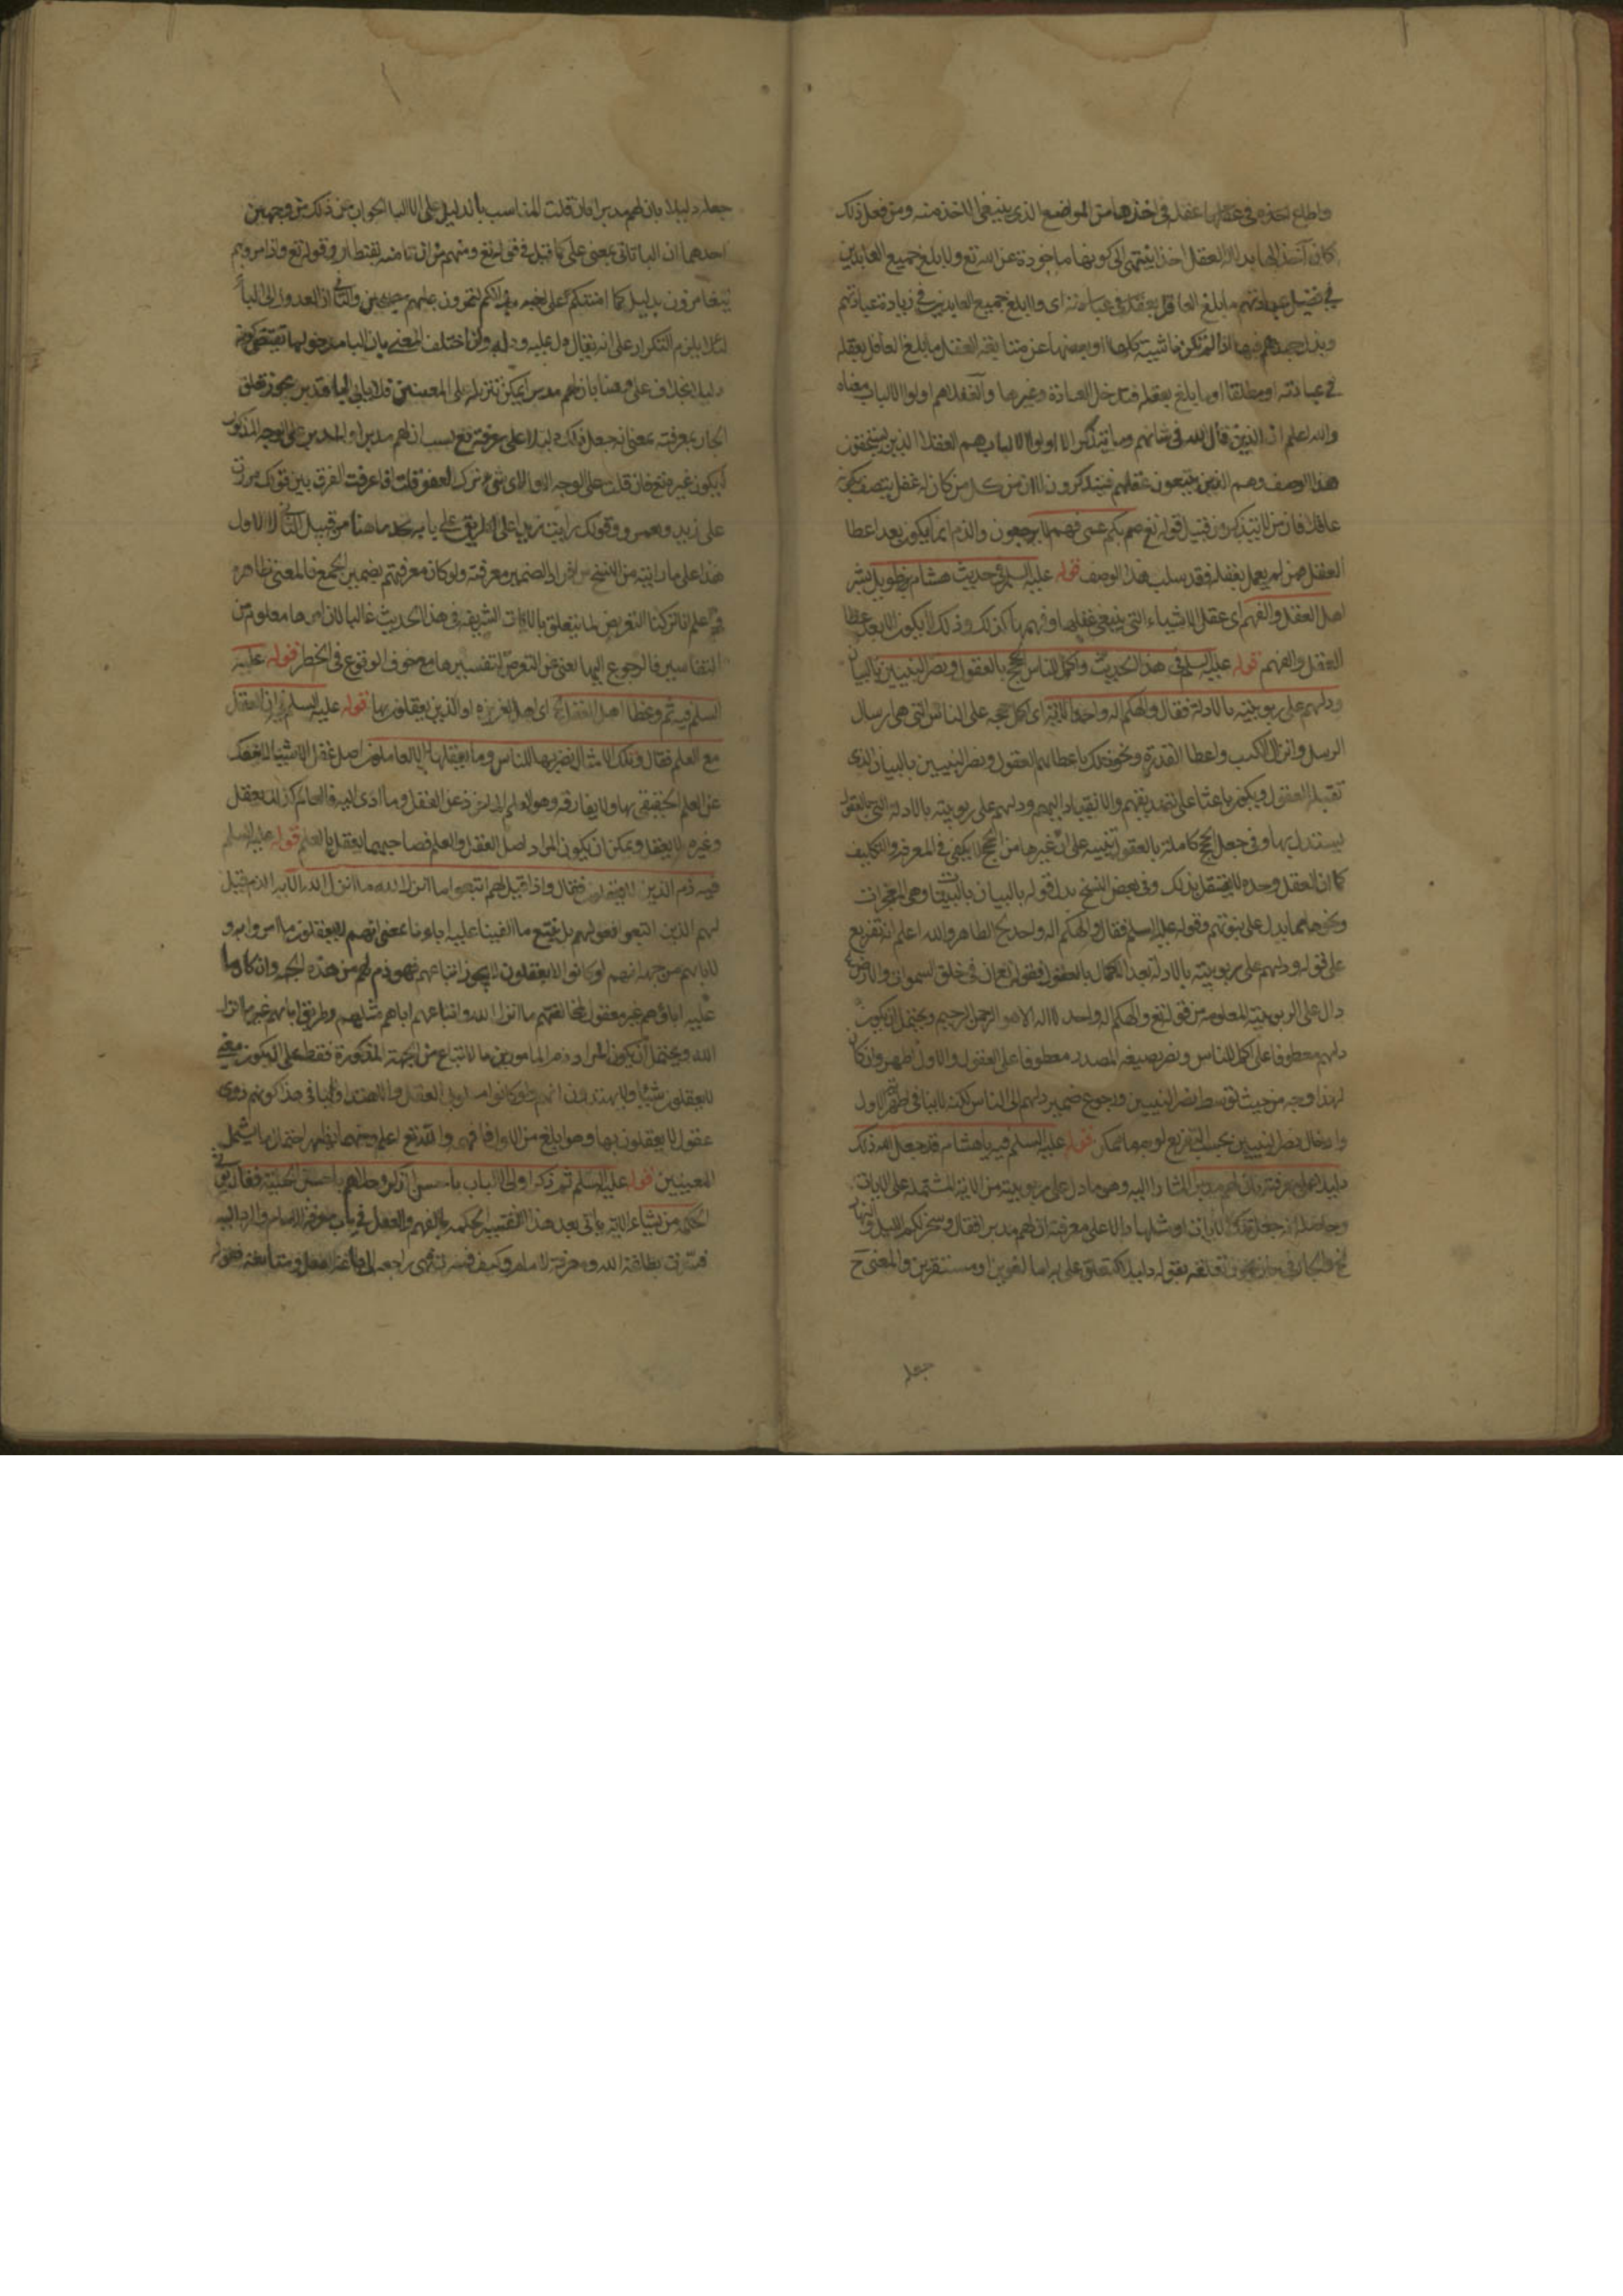 واطلع لخذه في عقلها عقله في اخذها من المواضع الذي ينبغي الاخذ منه ومن فعل ذلك
كان آخذا لها بدلالة العقل اخذا ينتهي الى كونها ماخوذة عن الله تع ولا بلغ جميع العابدين
في فضل عبادتهم ما بلغ العاقل بعقله في عبادته اى ولا بلغ جميع العابدين في زيادة عبادتهم
وبذل جهدهم فيها اذا لم تكن ناشية كلها او بعضها عن متابعة العقل ما بلغ العاقل بعقله
في عبادته او مطلقا او ما بلغ بعقله فتدخل العبادة وغيرها والعقلا هم اولوا الالباب معناه
والله اعلم ان الذين قال الله في شانهم وما يتذكر الا اولوا الالباب هم العقلا الذين يستحقون
هذا الوصف وهم الذين يتبعون عقلهم فيتذكرون لا ان من كل من كان له عقل يتصف بكونه
عاقلا فان من لا يتذكرون قيل قوله تع صم بكم عمى فهم لا يرجعون والذم انما يكون بعد اعطا
العقل فمن لم يعمل بعقله فقد سلب هذا الوصف قوله عليه السلم في حديث هشام الطويل بشر
اهل العقل والفهم اى عقل الاشياء التي ينبغي عقلها وفهمها كذلك وذلك لا يكون الا بعد عطا
العقل والفهم قوله عليه السلم في هذا الحديث واكمل للناس الحجج بالعقول ونصر النبيين بالبيان
ودلهم على ربوبيته بالادلة فقال والهكم اله واحد الآية اى اكمل حججه على الناس التي هي ارسال
الرسل وانزال الكتب واعطا القدرة ونحو ذلك باعطائهم العقول ونصر النبيين بالبيان الذي
تقبله العقول ويكون باعثا على تصديقهم والانقياد اليهم ودلهم على ربوبيته بالادلة التي بالعقول
يستدل بها وفي جعل الحجج كاملة بالعقول تنبيه على ان غيرها من الحجج لا يكفي في المعرفة والتكليف
كما ان العقل وحده لا يستقل بذلك وفي بعض النسخ بدل قوله بالبيان بالبينات وهي المعجزات
ونحوها مما يدل على نبوتهم وقوله عليه السلم فقال والهكم اله واحد الخ الظاهر والله اعلم انه تفريع
على قوله ودلهم على ربوبيته بالادلة بعد اكمال بالعقول فقوله تع ان في خلق السموات والارض
دال على الربوبية المعلومة من قوله تع والهكم اله واحد لا اله الا هو الرحمن الرحيم ويحتمل ان يكون
دلهم معطوفا على اكمل للناس ونصر بصيغة المصدر معطوفا على العقول والاول اظهر وان كان
لهذا وجه من حيث توسط نصر النبيين ورجوع ضمير دلهم الى الناس لكنه لا ينافي اظهرية الاول
وادخال نصر النبيين بحسب التفريع لو جعلها ممكن قوله عليه السلم فيه يا هشام قد جعل الله ذلك
دليلا على معرفته بان لهم مدبرا المشار اليه وهو ما دل على ربوبيته من الآية المشتملة على الايات
وحاصله انه جعل تلك الآيات او مثلها دالا على معرفته ان لهم مدبرا فقال وسخر لكم الليل والنهار
الخ بقوله دليلا متعلق على والمعنى ح
جعله
جعله دليلا بان لهم مدبرا فان قلت المناسب بالدليل على لا البا الجواب عن ذلك من وجهين
احدهما ان البا تاتى بمعنى على كما قيل في قوله تع ومنهم من ان تامنه بقنطار وقوله تع واذا مروا بهم
يتغامزون بدليل كما امنتكم على اخيه وانكم لتمرون عليهم مصبحين والثاني ان العدول الى البا
لئلا يلزم التكرار على انه يقال دل عليه ودل به وان اختلف المعنى بان البا مدخولها يقتضي كونه
دليلا بخلاف على وهنا بان لهم مدبرا يمكن تنزيله على المعنيين فلا ينافي البا قد يجوز تعلق
الجار بمعرفته بمعنى انه جعل ذلك دليلا على معرفته تع بسبب ان لهم مدبرا والمدبر على الوجه المذكور
لا يكون غيره تع فان قلت على الوجه الاول لاى شيء ترك العطف قلت اذا عرفت الفرق بين قولك مررت
على زيد وعمرو وقولك رايت زيدا على الطريق على بابه تجد ما هنا من قبيل الثاني لا الاول
هذا على ما رايته من النسخ من افراد الضمير معرفته ولو كان معرفتهم بضمير الجمع فالمعنى ظاهر
واعلم انا تركنا التعرض لما يتعلق بالايات الشريفة في هذا الحديث غالبا لان امرها معلوم من
التفاسير فالرجوع اليها يغنى عن التعرض لتفسيرها مع خوف الوقوع في الخطر قوله عليه
السلم فيه ثم وعظ اهل العقل الخ اى اهل الغريزه او الذين يعقلون بها قوله عليه السلم ان العقل
مع العلم فقال وتلك الامثال نضربها للناس وما يعقلها الا العالمون اصل عقل الاشيا لا ينفك
عن العلم الحقيقي بها ولا يفارقه وهو العلم الماخوذ عن العقل وما ادى اليه فالعالم كذلك يعقل
وغيره لا يعقل ويمكن ان يكون المراد اصل العقل والعلم فصاحبهما يعقل بالعلم قوله عليه السلم
فيه ذم الذين لا يعقلون فقال واذا قيل لهم اتبعوا ما انزل الله ما انزل الله الآية الذم قبل
لهم الذين اتبعوا فقولهم بل نتبع ما الفينا عليه اباءنا بمعنى انهم لا يعقلون ما امروا به و
لابائهم من جهة انهم لو كانوا لا يعقلون لا يجوز اتباعهم فهو ذم لهم من هذه الجهة وان كان ما
عليه اباؤهم غير معقول لمخالفتهم ما انزل الله واتباعهم اباهم مثلهم وطريق ابائهم غير ما انزل
الله ويحتمل ان يكون المراد ذم المامورين بالاتباع من الجهة المذكورة فقط على ان يكون معنى
لا يعقلون شيئا ولا يهتدون انهم لو كانوا من اولى العقل والاهتداء ولا ينافي هذا كونهم ذوى
عقول لا يعقلون بها وهو ابلغ من الاول فافهم والله تع اعلم ومنهما يظهر احتمال ما يشمل
المعنيين قوله عليه السلم ثم ذكر اولى الالباب باحسن الذكر وحلاهم باحسن الحلية فقال يؤتى
الحكمة من يشاء الآية ياتى بعد هذا تفسير الحكمة بالفهم والعقل في باب معرفة الامام والرد اليه
فسرت بطاعة الله ومعرفة الامام وكيف فسرت فهي راجعة الى طاعة العقل ومتابعته فقوله